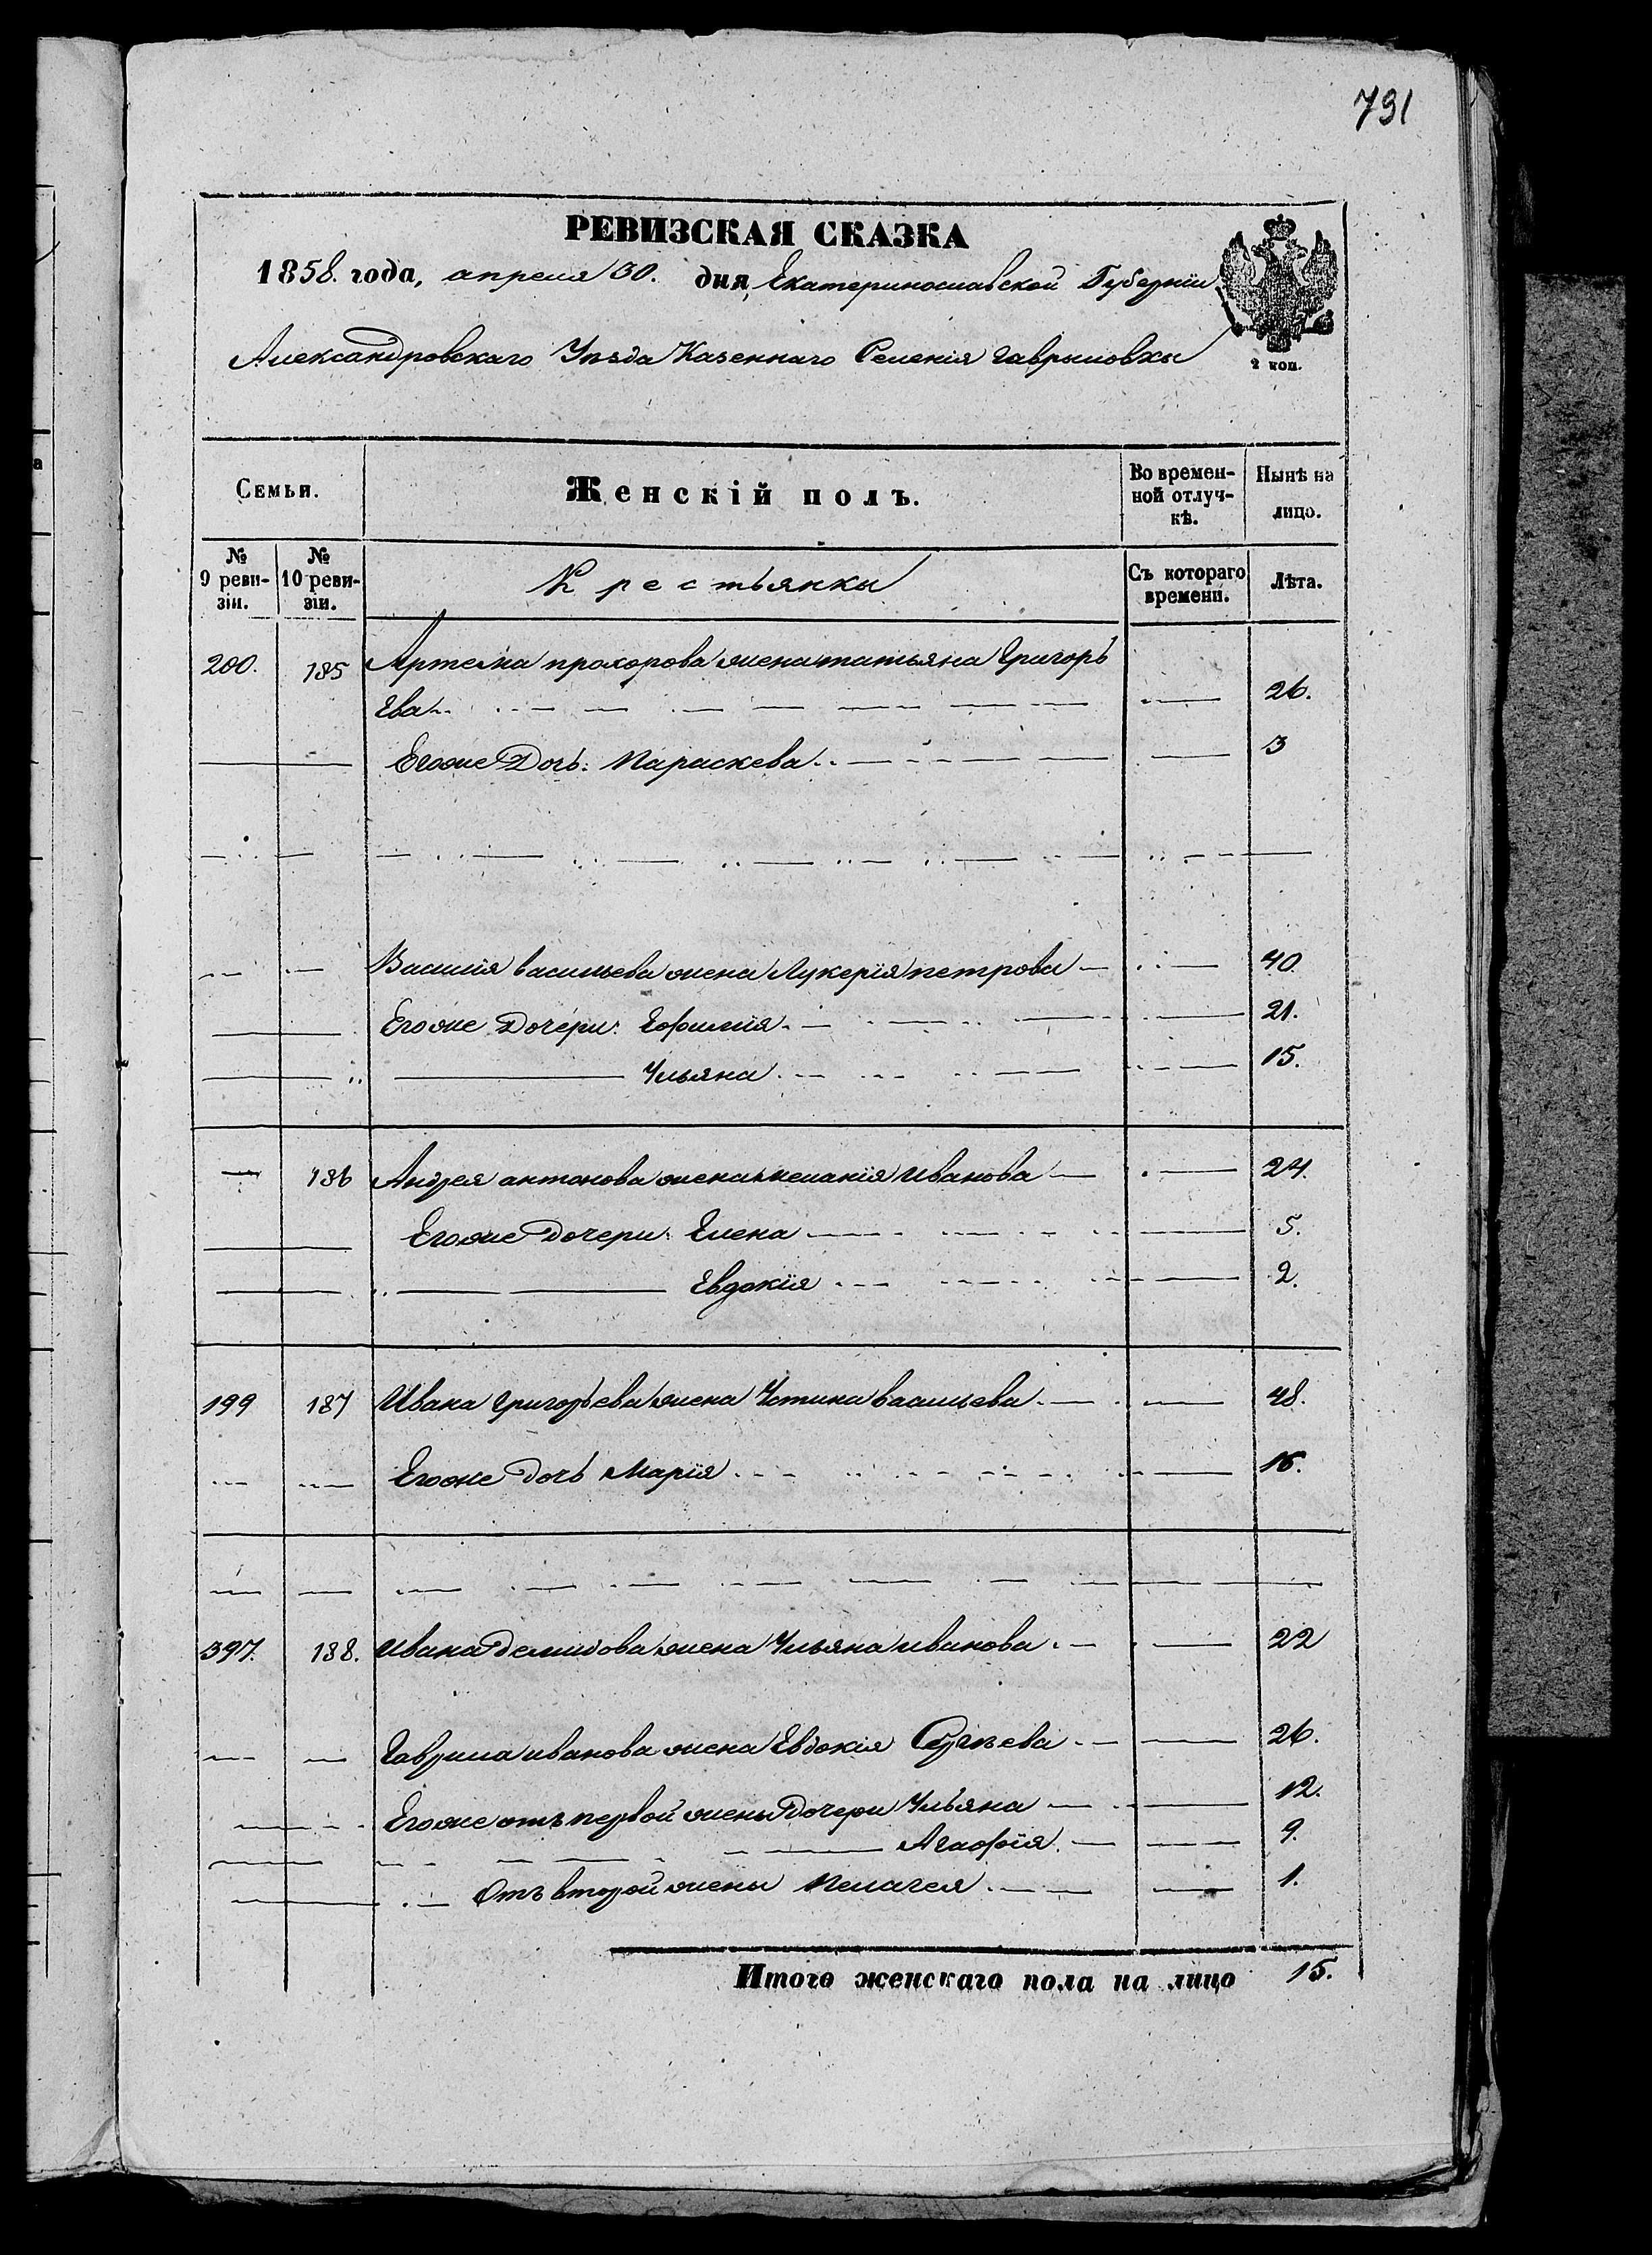 791
РЕВИЗСКАЯ СКАЗКА
1858. года, апреля 30. дня, Екатеринославской Губерніи
Александровскаго Уѣзда Казеннаго Селенія Гаврыловки
2 коп.
Семьи. Женскій полъ. Во времен-ной отлуч-кѣ. Нынѣ на лицо.
№ 9 реви-зіи. № 10 реви-зіи. Крестьянки Съ котораго времени. Лѣта.
200. 185 Артема прохорова жена татьяна Григорь
Ева 26.
Егоже Дочь: Параскева 3
Василія васильева жена Лукерія петрова 40.
Егоже Дочери: Ефимія 21.
Ульяна 15.
186 Андрея антонова жена меланія Иванова 24.
Егоже Дочери: Елена 5.
Евдокія 2.
199 187 Ивана Григорьева жена Устина васильева 48.
Егоже дочь Марія 16.
397. 188. Ивана Демидова жена Ульяна иванова 22
Гаврила иванова жена Евдокія Сергѣева 26.
Егоже отъ первой жены Дочери Ульяна 12.
Агафія 9.
Отъ второй жены Пелагея 1.
Итого женскаго пола на лицо 15.